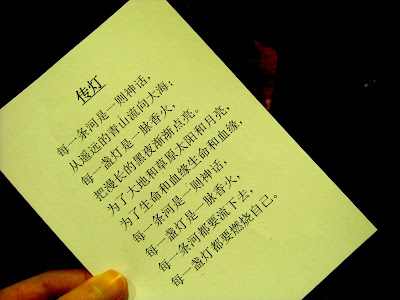 传灯
每一条河是一则神话，
从遥远的青山流向大海；
每一盏灯是一脉香火，
把漫长的黑夜渐渐点亮。
为了大地和草原太阳和月亮，
为了生命和血缘生命和血缘，
每一条河是一则神话，
每一盏灯是一脉香火，
每一条河都要流下去，
每一盏灯都要燃烧自己。